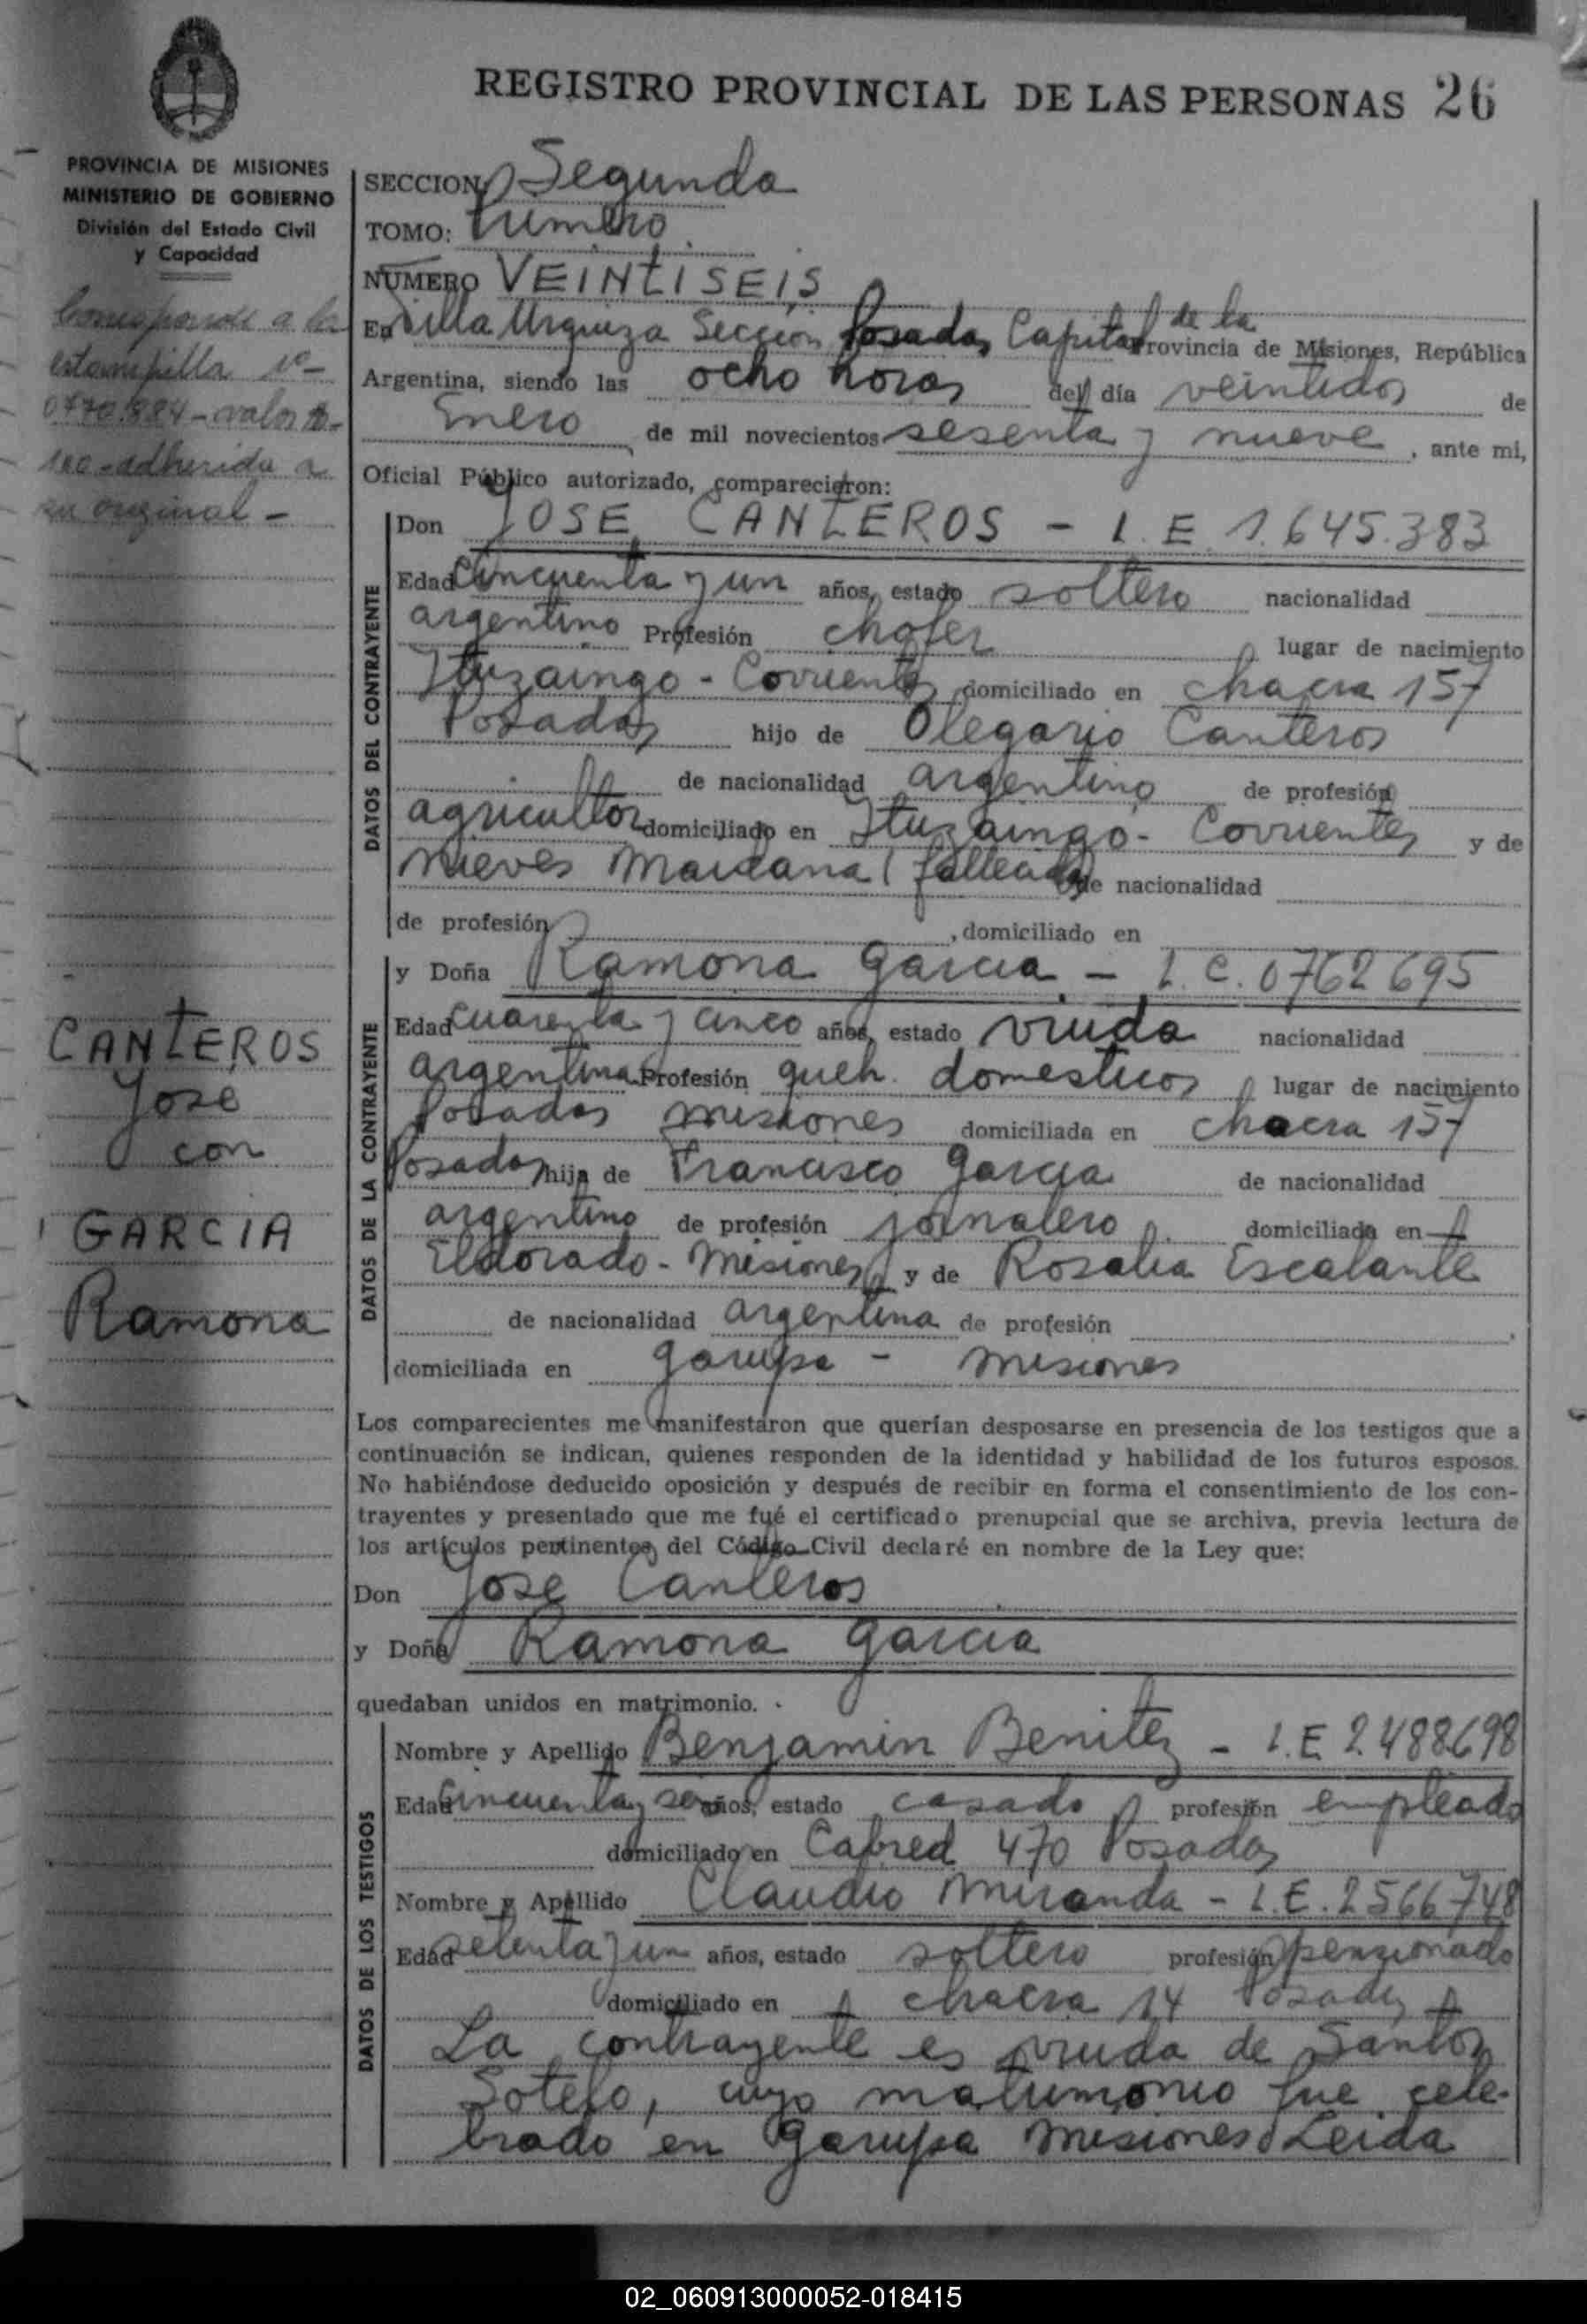 REGISTRO PROVINCIAL DE LAS PERSONAS 26
PROVINCIA DE MISIONES
MINISTERIO DE GOBIERNO
División del Estado Civil
y Capacidad
Corresponde a la
estampilla Nº
0770.884 - valor
100 - adherida a
su original -
CANTEROS
Jose
con
GARCIA
Ramona
SECCION Segunda
TOMO: Primero
NUMERO VEINTISEIS
En Villa Urquiza Sección Posadas Capital de la Provincia de Misiones, República
Argentina, siendo las ocho horas del día veintidos de
Enero de mil novecientos sesenta y nueve, ante mi,
Oficial Público autorizado, comparecieron:
DATOS DEL CONTRAYENTE
Don JOSE CANTEROS - L.E 1.645.383
Edad Cincuenta y un años, estado soltero nacionalidad
argentino Profesión chofer lugar de nacimiento
Ituzaingo - Corrientes domiciliado en chacra 157
Posadas hijo de Olegario Canteros
de nacionalidad argentino de profesión
agricultor domiciliado en Ituzaingo - Corrientes y de
Nieves Maidana (fallecida) de nacionalidad
de profesión , domiciliado en
DATOS DE LA CONTRAYENTE
y Doña Ramona Garcia - L.C. 0762695
Edad cuarenta y cinco años, estado viuda nacionalidad
argentina Profesión queh. domesticos lugar de nacimiento
Posadas misiones domiciliada en chacra 157
Posadas hija de Francisco Garcia de nacionalidad
argentino de profesión jornalero domiciliada en
Eldorado - Misiones y de Rosalia Escalante
de nacionalidad argentina de profesión
domiciliada en Garupa - misiones
Los comparecientes me manifestaron que querían desposarse en presencia de los testigos que a
continuación se indican, quienes responden de la identidad y habilidad de los futuros esposos.
No habiéndose deducido oposición y después de recibir en forma el consentimiento de los con-
trayentes y presentado que me fué el certificado prenupcial que se archiva, previa lectura de
los artículos pertinentes del Código Civil declaré en nombre de la Ley que:
Don Jose Canteros
y Doña Ramona Garcia
quedaban unidos en matrimonio.
DATOS DE LOS TESTIGOS
Nombre y Apellido Benjamin Benitez - L.E 2.488.698
Edad Cincuenta y seis años, estado casado profesión empleado
domiciliado en Cabred 470 Posadas
Nombre y Apellido Claudio Miranda - L.E. 2566748
Edad setenta y un años, estado soltero profesión pensionado
domiciliado en chacra 14 Posadas
La contrayente es viuda de Santos
Sotelo, cuyo matrimonio fue cele-
brado en Garupa Misiones Leida
02_060913000052-018415